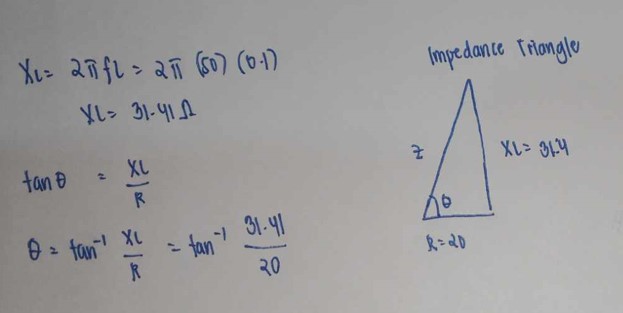 XL = 2πfL = 2π (50) (0.1)
XL = 31.41 Ω
tanθ = XL/R
θ = tan⁻¹ XL/R = tan⁻¹ 31.41/20
Impedance Triangle
Z
XL = 31.4
θ
R = 20